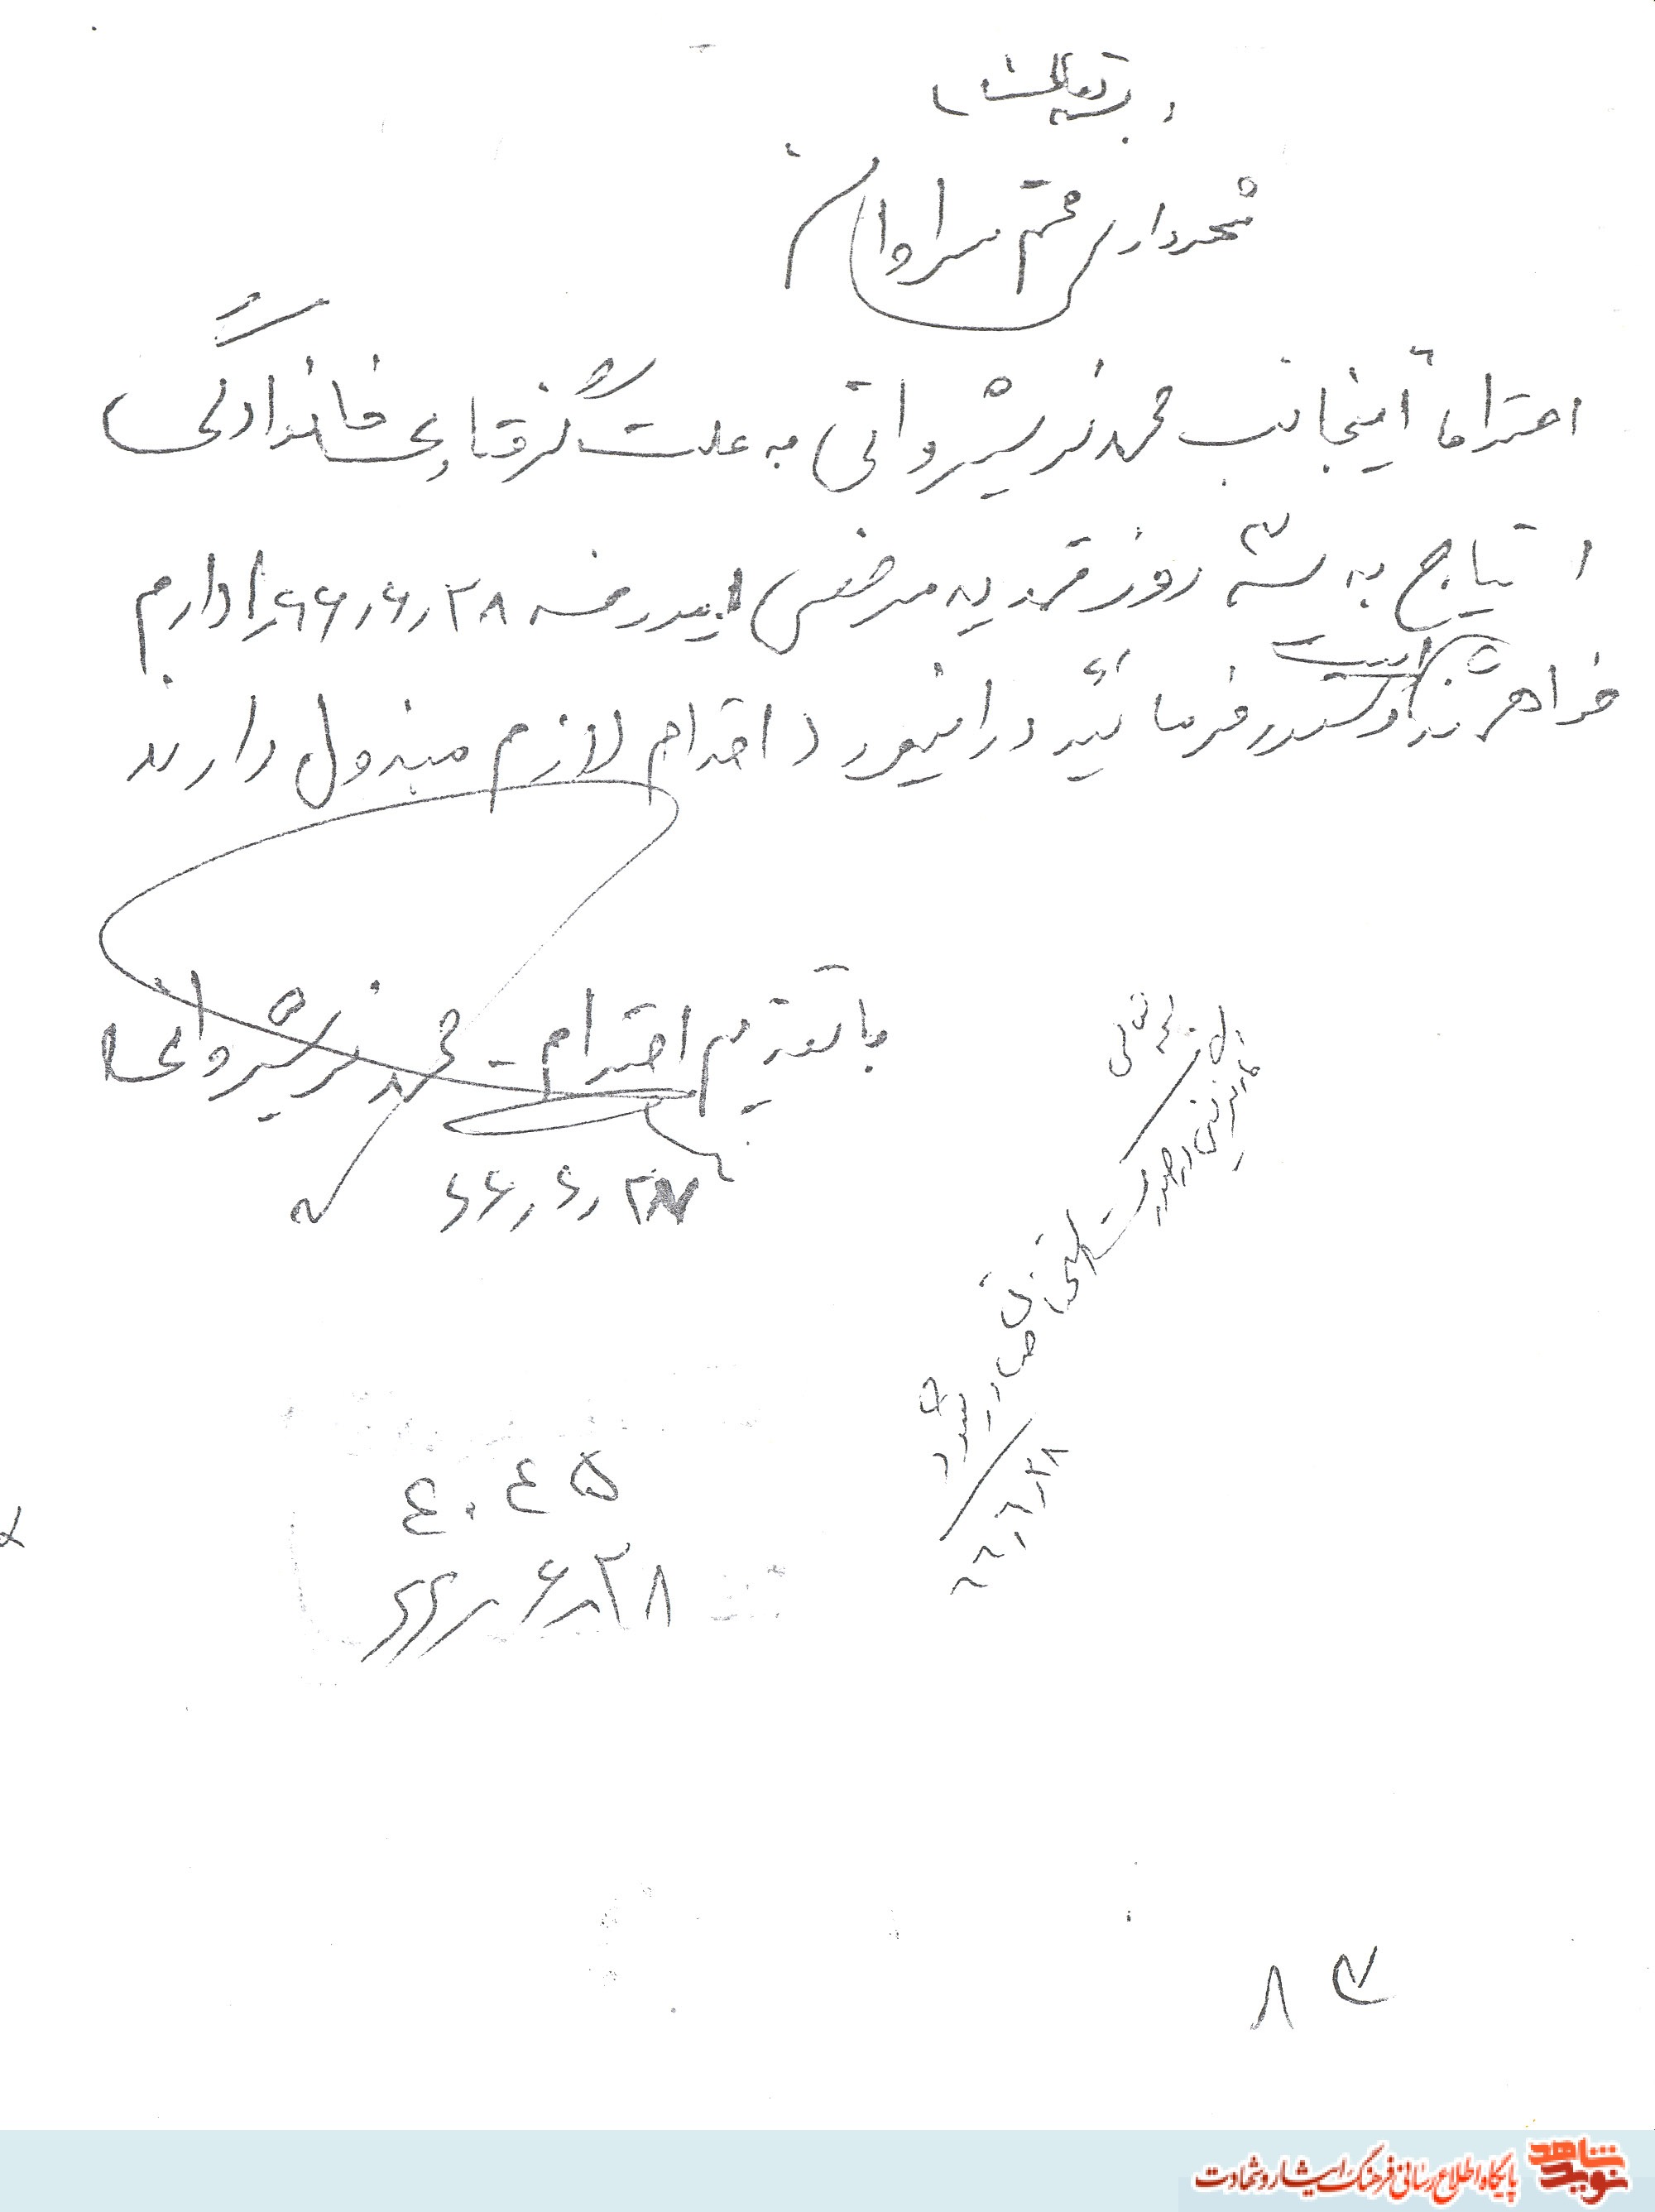 بسمه تعالی
شهرداری محترم سراوان
احتراماً اینجانب محمد نور شیروانی به علت گرفتاری خانوادگی
احتیاج به سه روز قرضیه مرخصی از مورخه ۶۶٫۶٫۲۸ را دارم
خواهشمند است دستور فرمائید در اینمورد اقدام لازم مبذول دارند
با تقدیم احترام - محمد نور شیروانی
۶۶٫۶٫۲۸
صادر شود
۶۶٫۶٫۲۸
۴۰۴۵
۶۶٫۶٫۲۸
۸۳
نوید شاهد
پایگاه اطلاع رسانی فرهنگ ایثار و شهادت